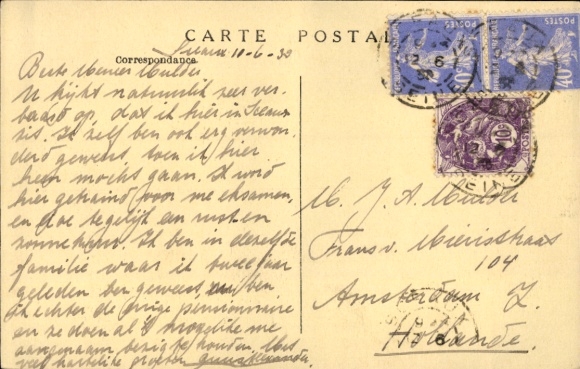 CARTE POSTALE
Correspondance
Sceaux 10-6-32
Beste Meneer Mulder
U kijkt natuurlijk zeer ver-
baasd op, dat ik hier in Sceaux
zit. Ik zelf ben ook erg verwon-
derd geweest, toen ik hier
heen mocht gaan. Ik word
hier getraind voor me eksamen,
en doe tegelijk een rust en
zonnekuur. Ik ben in dezelfde
familie waar ik twee jaar
geleden ben geweest, ben
ik echter de enige pensionnaire
en ze doen al 't mogelijke me
aangenaam bezig te houden. Met
veel hartelijke groeten
M. J. A. Mulder
Frans v. Mierisstraat
104
Amsterdam Z.
Hollande.
POSTES
40c
POSTES
40c
10